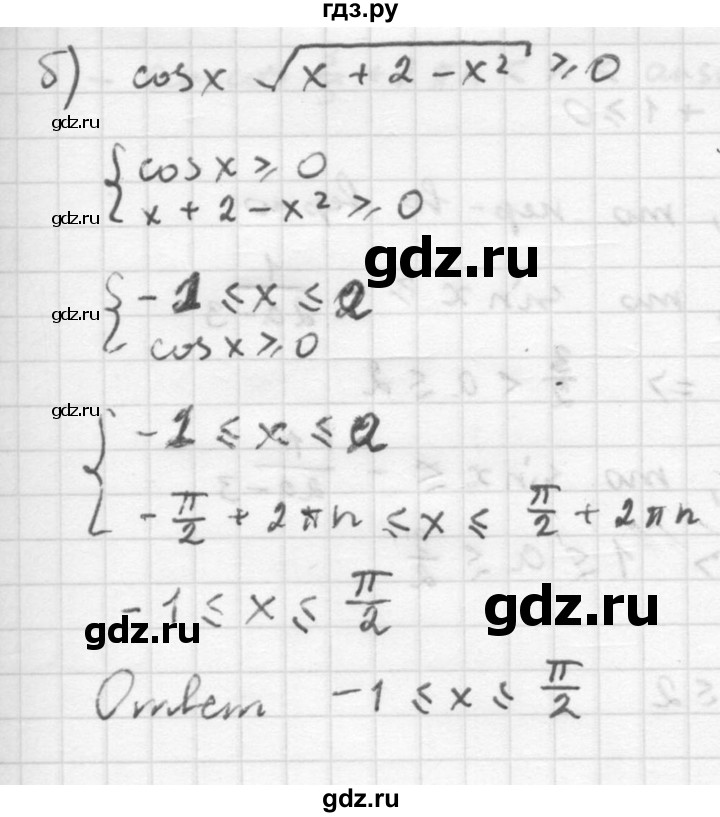 гдз.ру
б) cos x √(x + 2 − x²) ⩾ 0
gdz.ru
{ cos x ⩾ 0
x + 2 − x² ⩾ 0
gdz.ru
gdz.ru
{ −1 ⩽ x ⩽ 2
gdz.ru
cos x ⩾ 0
gdz.ru
{ −1 ⩽ x ⩽ 2
−π/2 + 2πn ⩽ x ⩽ π/2 + 2πn
−1 ⩽ x ⩽ π/2
gdz.ru
gdz.ru
Ответ −1 ⩽ x ⩽ π/2
gdz.ru